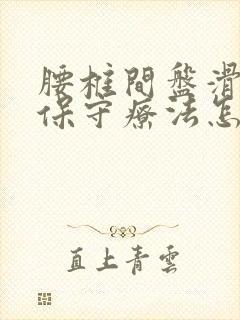 腰椎間盤滑
保守療法怎
直上青雲